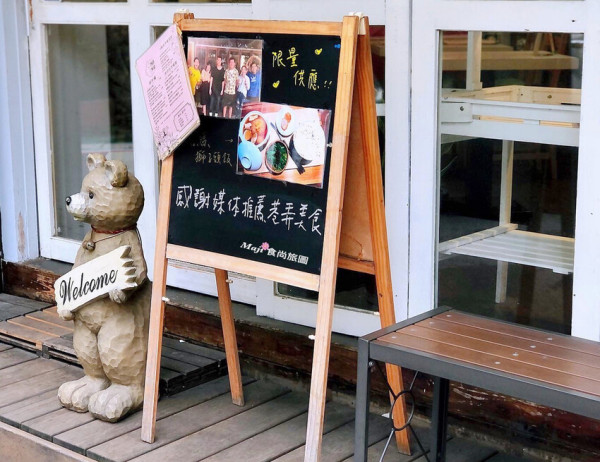 限量
供應!!
獅子頭飯
感謝媒体推薦巷弄美食
Maji 食尚旅圖
Welcome